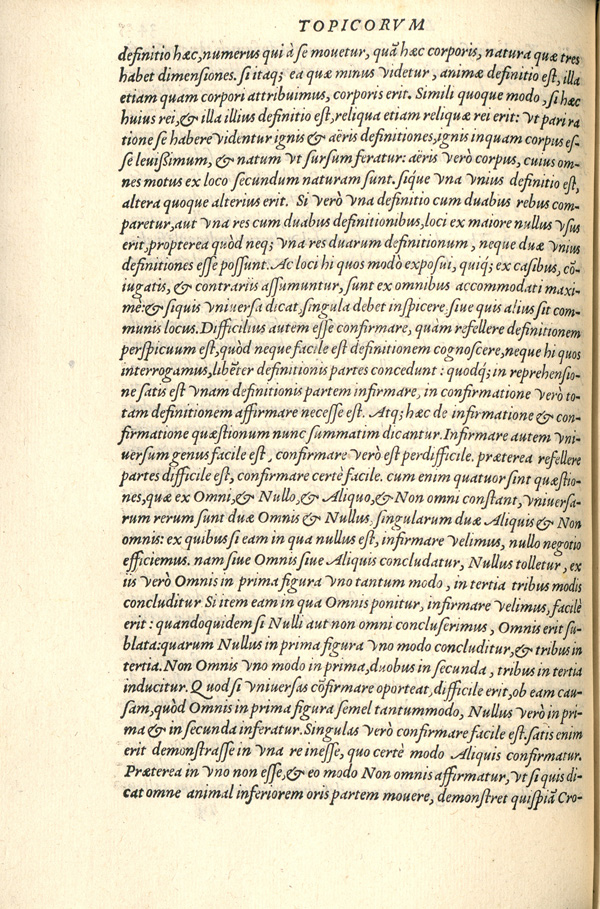 TOPICORVM
definitio hæc, numerus qui à se mouetur, quã hæc corporis, natura quæ tres
habet dimensiones. si itaq; ea quæ minus videtur, animæ definitio est, illa
etiam quam corpori attribuimus, corporis erit. Simili quoque modo, si hæc
huius rei, & illa illius definitio est, reliqua etiam reliquæ rei erit: vt pari ra
tione se habere videntur ignis & aëris definitiones, ignis inquam corpus es-
se leuißimum, & natum vt sursum feratur: aëris verò corpus, cuius om-
nes motus ex loco secundum naturam sunt. sique vna vnius definitio est,
altera quoque alterius erit. Si verò vna definitio cum duabus rebus com-
paretur, aut vna res cum duabus definitionibus, loci ex maiore nullus vsus
erit, propterea quòd neq; vna res duarum definitionum, neque duæ vnius
definitiones esse possunt. Ac loci hi quos modò exposui, quiq; ex casibus, cõ-
iugatis, & contrariis assumuntur, sunt ex omnibus accommodati maxi-
mè: & siquis vniuersa dicat, singula debet inspicere, siue quis alius sit com-
munis locus. Difficilius autem esse confirmare, quàm refellere definitionem
perspicuum est, quòd neque facile est definitionem cognoscere, neque hi quos
interrogamus, libẽter definitionis partes concedunt: quodq; in reprehensio-
ne satis est vnam definitionis partem infirmare, in confirmatione verò to-
tam definitionem affirmare necesse est. Atq; hæc de infirmatione & con-
firmatione quæstionum nunc summatim dicantur. Infirmare autem vni-
uersum genus facile est, confirmare verò est perdifficile. præterea refellere
partes difficile est, confirmare certè facile. cum enim quatuor sint quæstio-
nes, quæ ex Omni, & Nullo, & Aliquo, & Non omni constant, vniuersa-
rum rerum sunt duæ Omnis & Nullus, singularum duæ Aliquis & Non
omnis: ex quibus si eam in qua nullus est, infirmare velimus, nullo negotio
efficiemus. nam siue Omnis siue Aliquis concludatur, Nullus tolletur, ex
iis verò Omnis in prima figura vno tantum modo, in tertia tribus modis
concluditur Si item eam in qua Omnis ponitur, infirmare velimus, facilè
erit: quandoquidem si Nulli aut non omni concluserimus, Omnis erit su-
blata: quarum Nullus in prima figura vno modo concluditur, & tribus in
tertia. Non Omnis vno modo in prima, duobus in secunda, tribus in tertia
inducitur. Quod si vniuersas cõfirmare oporteat, difficile erit, ob eam cau-
sam, quòd Omnis in prima figura semel tantummodo, Nullus verò in pri-
ma & in secunda inferatur. Singulas verò confirmare facile est. satis enim
erit demonstrasse in vna re inesse, quo certè modo Aliquis confirmatur.
Præterea in vno non esse, & eo modo Non omnis affirmatur, vt si quis di-
cat omne animal inferiorem oris partem mouere, demonstret quispiã Cro-